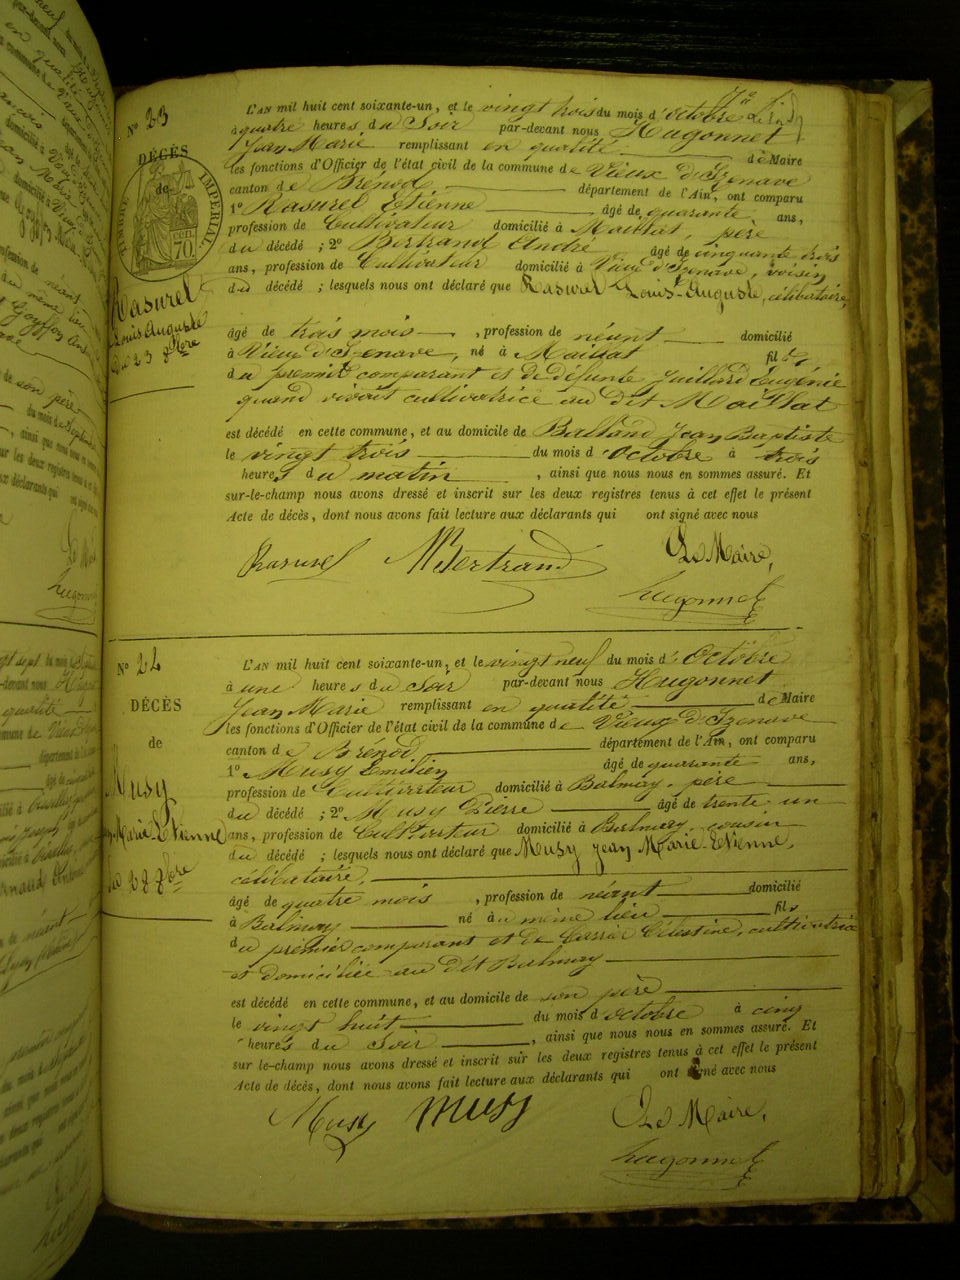 7º
Nº 23
DÉCÈS
de
TIMBRE IMPÉRIAL
CEN. 70.
Rasurel
Louis Auguste
du 23 8bre
L'AN mil huit cent soixante-un, et le vingt trois du mois d'octobre
à quatre heures du Soir par-devant nous Hugonnet
Jean Marie remplissant en qualité de Maire
les fonctions d'Officier de l'état civil de la commune de Vieux d'Izenave
canton de Brénod département de l'Ain, ont comparu
1º Rasurel Etienne âgé de quarante ans,
profession de Cultivateur domicilié à Maillat, père
du décédé ; 2º Bertrand André âgé de cinquante trois
ans, profession de Cultivateur domicilié à Vieux d'Izenave, voisin
du décédé ; lesquels nous ont déclaré que Rasurel Louis-Auguste, célibataire,
âgé de trois mois , profession de néant domicilié
à Vieux d'Izenave, né à Maillat fils
du premier comparant et de défunte Juillard Eugénie
quand vivait cultivatrice au dit Maillat
est décédé en cette commune, et au domicile de Balland Jean Baptiste
le vingt trois du mois d'octobre à trois
heures du matin , ainsi que nous nous en sommes assuré. Et
sur-le-champ nous avons dressé et inscrit sur les deux registres tenus à cet effet le présent
Acte de décès, dont nous avons fait lecture aux déclarants qui ont signé avec nous
Rasurel Bertrand Le Maire,
hugonnet
Nº 24
DÉCÈS
de
Musy
Marie Etienne
du 28 8bre
L'AN mil huit cent soixante-un, et le vingt neuf du mois d'Octobre
à une heures du Soir par-devant nous Hugonnet
Jean Marie remplissant en qualité de Maire
les fonctions d'Officier de l'état civil de la commune de Vieux d'Izenave
canton de Brénod département de l'Ain, ont comparu
1º Musy Emilien âgé de quarante ans,
profession de Cultivateur domicilié à Balmay, père
du décédé ; 2º Musy Pierre âgé de trente un
ans, profession de Cultivateur domicilié à Balmay, cousin
du décédé ; lesquels nous ont déclaré que Musy Jean Marie-Etienne,
célibataire,
âgé de quatre mois , profession de néant domicilié
à Balmay né au même lieu fils
du premier comparant et de Carrier Célestine, cultivatrice
et domiciliée au dit Balmay
est décédé en cette commune, et au domicile de son père
le vingt huit du mois d'octobre à cinq
heures du Soir , ainsi que nous nous en sommes assuré. Et
sur le-champ nous avons dressé et inscrit sur les deux registres tenus à cet effet le présent
Acte de décès, dont nous avons fait lecture aux déclarants qui ont signé avec nous
Musy Musy Le Maire,
hugonnet